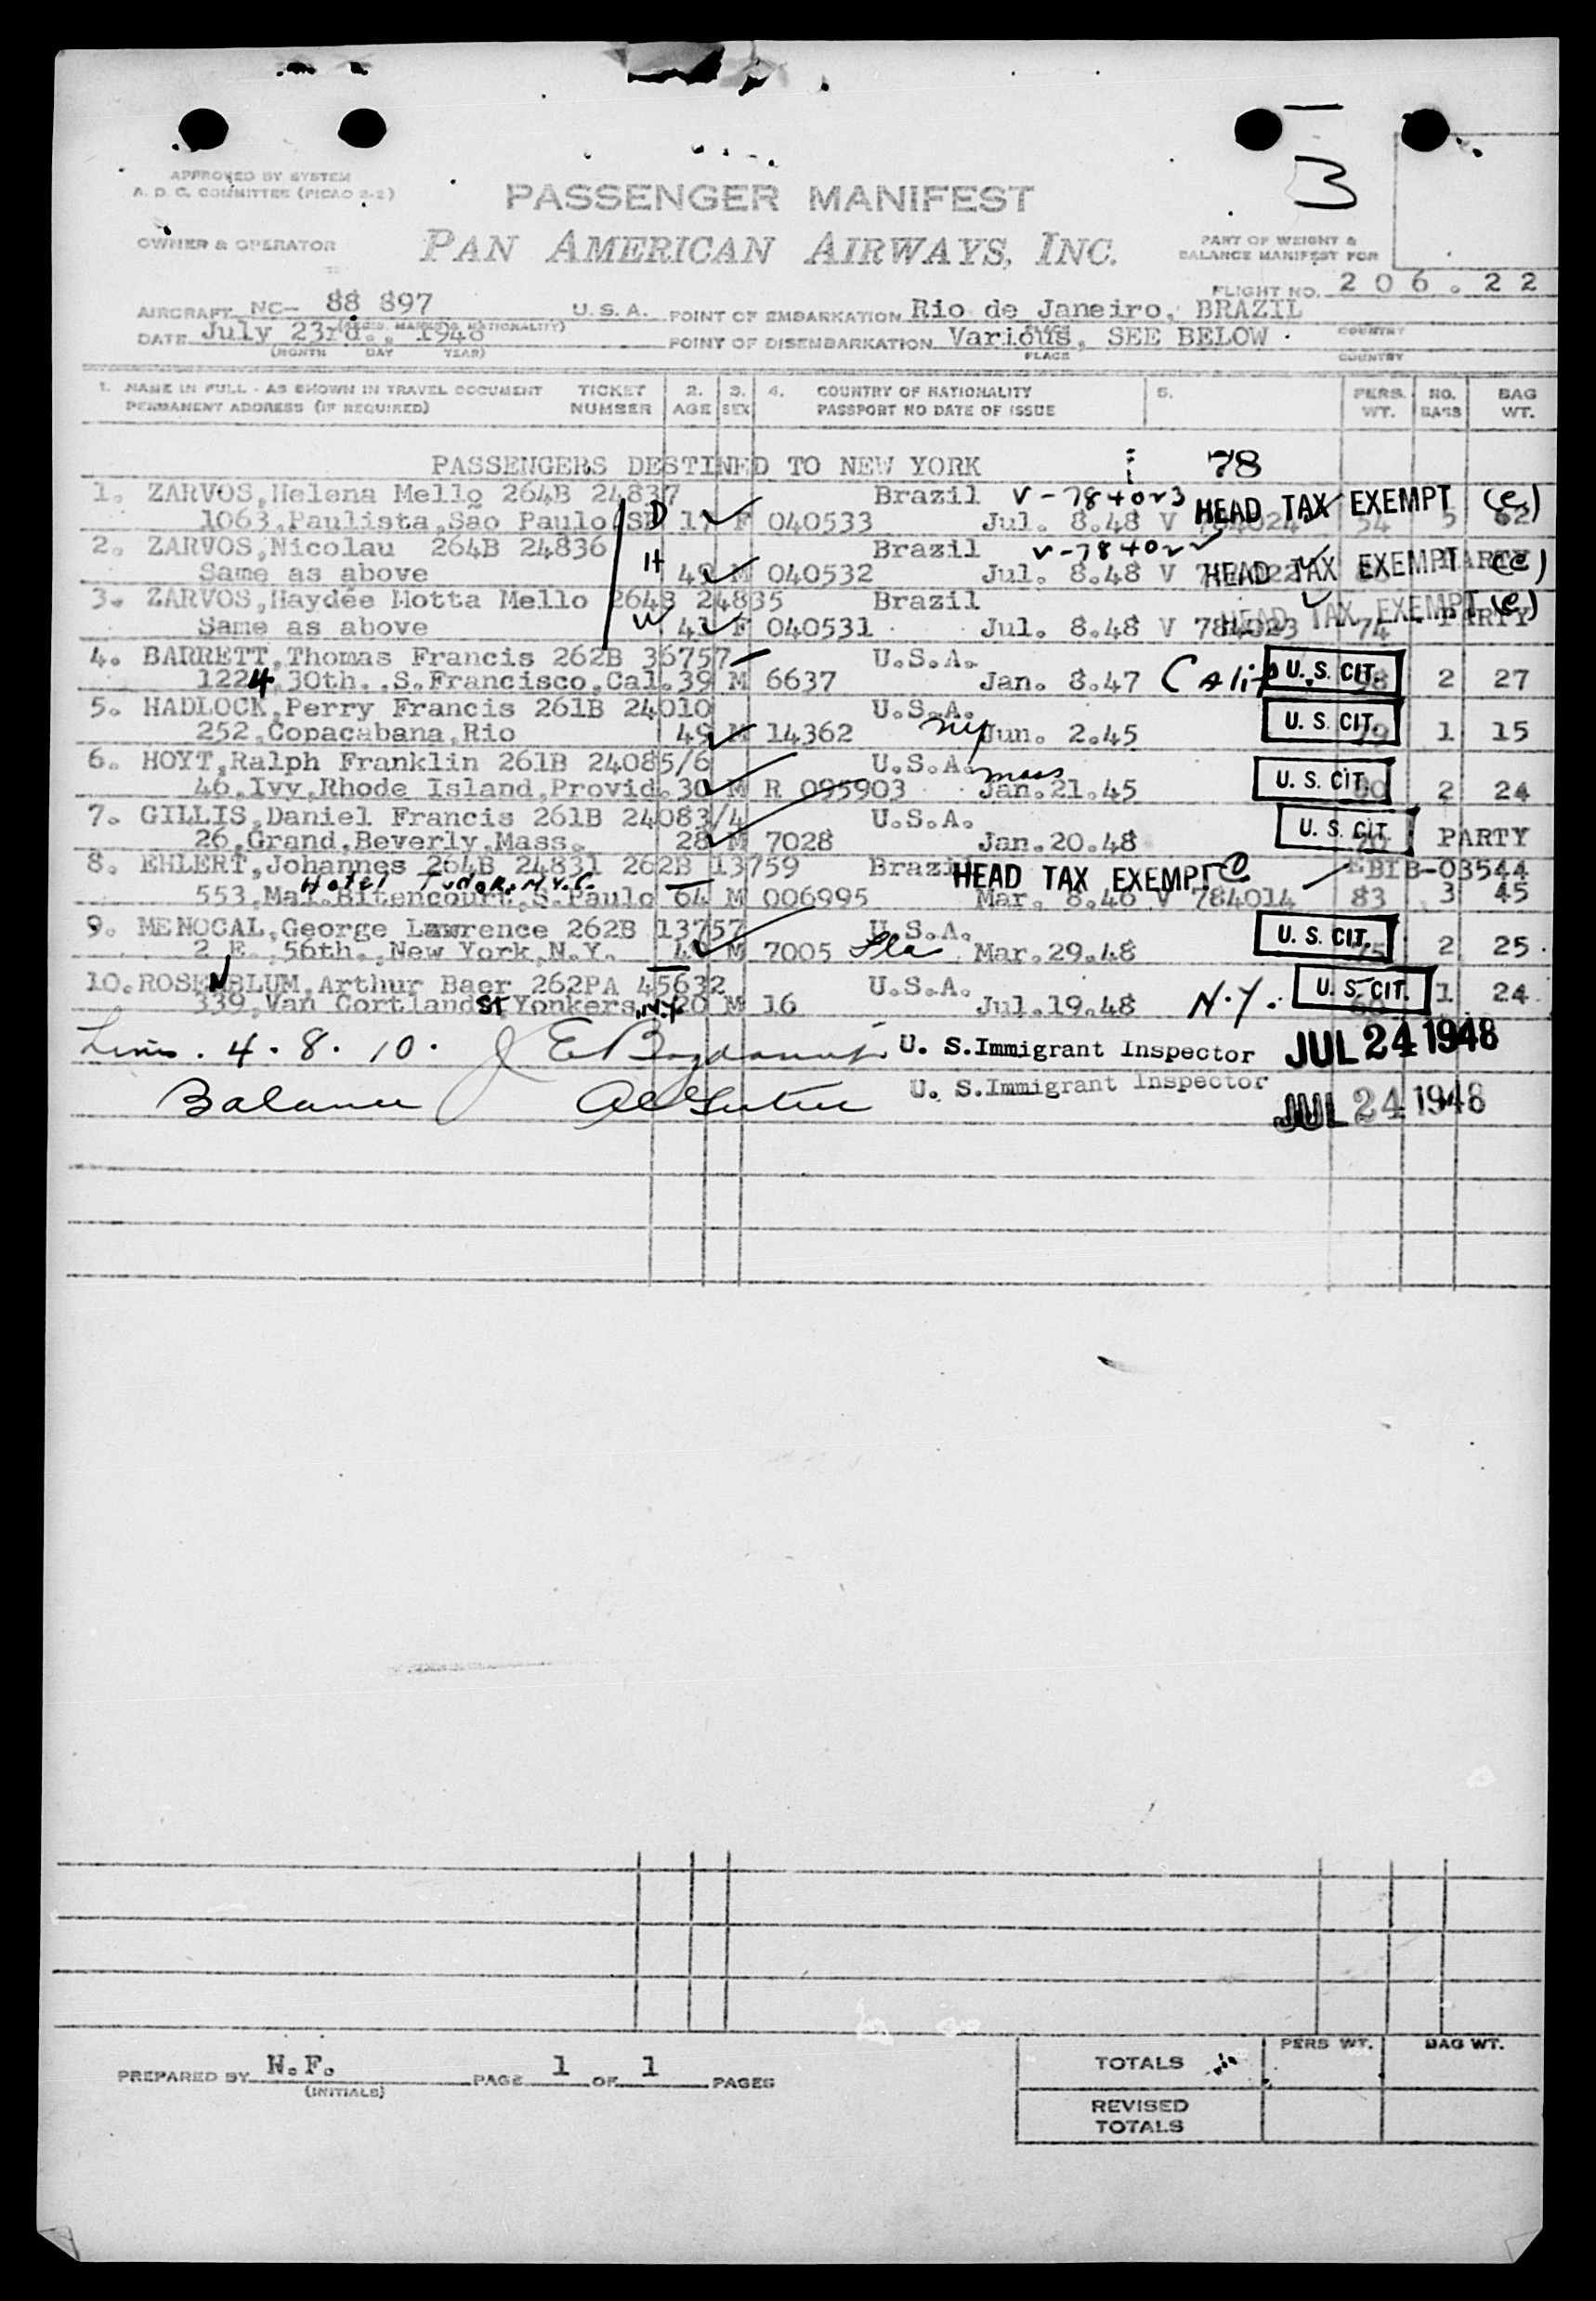 3
APPROVED BY SYSTEM
A. D. C. COMMITTEE (PICAO 2-2)
PASSENGER MANIFEST
OWNER & OPERATOR
PAN AMERICAN AIRWAYS, INC.
PART OF WEIGHT &
BALANCE MANIFEST FOR
FLIGHT NO. 206.22
AIRCRAFT NC- 88 897 U.S.A. POINT OF EMBARKATION Rio de Janeiro, BRAZIL
(REGIS. MARKS & NATIONALITY) PLACE COUNTRY
DATE July 23rd., 1948 POINT OF DISEMBARKATION Various, SEE BELOW.
(MONTH DAY YEAR) PLACE COUNTRY
1. NAME IN FULL - AS SHOWN IN TRAVEL DOCUMENT TICKET 2. 3. 4. COUNTRY OF NATIONALITY 5. PERS. NO. BAG
PERMANENT ADDRESS (IF REQUIRED) NUMBER AGE SEX PASSPORT NO DATE OF ISSUE WT. BAGS WT.
PASSENGERS DESTINED TO NEW YORK 78
1. ZARVOS,Helena Mello 264B 24837 Brazil V-784023 HEAD TAX EXEMPT (e)
1063,Paulista,São Paulo(SP D 17 F 040533 Jul. 8.48 V 784024 54 5 62
2. ZARVOS,Nicolau 264B 24836 Brazil V-784022
Same as above H 49 M 040532 Jul. 8.48 V HEAD TAX EXEMPT PARTY (e)
3. ZARVOS,Haydée Motta Mello 264B 24835 Brazil HEAD TAX EXEMPT (e)
Same as above W 41 F 040531 Jul. 8.48 V 784023 74 PARTY
4. BARRETT,Thomas Francis 262B 36757 U.S.A.
1224,30th.,S.Francisco,Cal.39 M 6637 Jan. 8.47 Calif U. S. CIT. 98 2 27
5. HADLOCK,Perry Francis 261B 24010 U.S.A.
252,Copacabana,Rio 49 M 14362 NY Jun. 2.45 U. S. CIT. 79 1 15
6. HOYT,Ralph Franklin 261B 24085/6 U.S.A. mass
46,Ivy,Rhode Island,Provid.30 M R 095903 Jan.21.45 U. S. CIT. 2 24
7. GILLIS,Daniel Francis 261B 24083/4 U.S.A.
26,Grand,Beverly,Mass. 28 M 7028 Jan.20.48 U. S. CIT. 70 PARTY
8. EHLERT,Johannes 264B 24831 262B 13759 Brazil HEAD TAX EXEMPT e EBIB-03544
Hotel Tudor. N.Y.C.
553,Mal.Bitencourt,S.Paulo 64 M 006995 Mar. 8.46 V 784014 83 3 45
9. MENOCAL,George Lawrence 262B 13757 U.S.A.
2 E.,56th.,New York,N.Y. M 7005 Fla Mar.29.48 U. S. CIT. 75 2 25
10.ROSENBLUM,Arthur Baer 262PA 45632 U.S.A.
339,Van Cortland St Yonkers,N.Y 20 M 16 Jul.19.48 N.Y. U. S. CIT. 1 24
Lines. 4. 8. 10. U. S. Immigrant Inspector JUL 24 1948
Balance U. S. Immigrant Inspector JUL 24 1948
PREPARED BY N.F. PAGE 1 OF 1 PAGES
(INITIALS)
PERS WT. BAG WT.
TOTALS
REVISED
TOTALS